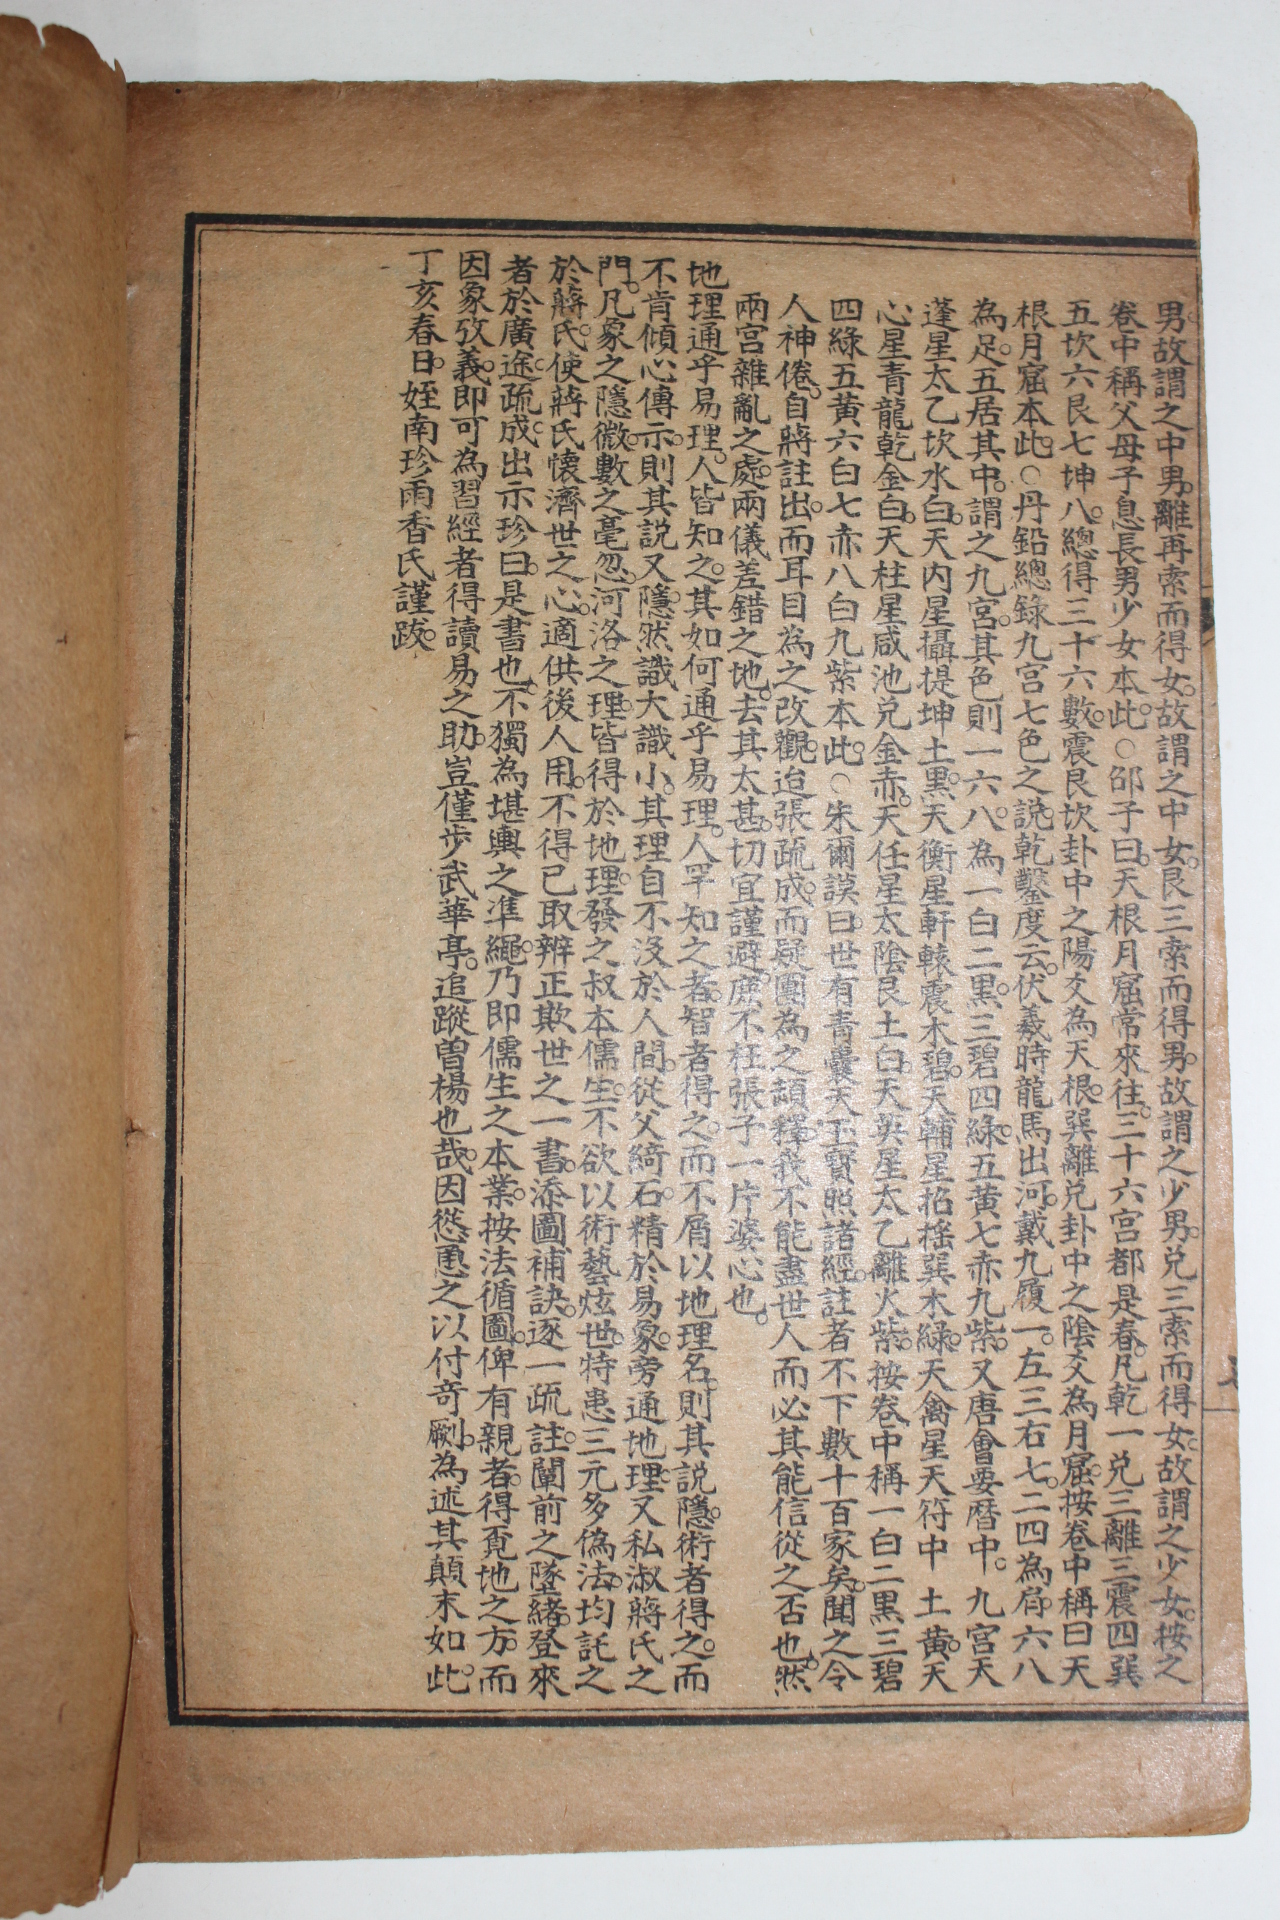 男。故謂之中男。離再索而得女。故謂之中女。艮三索而得男。故謂之少男。兌三索而得女。故謂之少女。按之
卷中稱父母子息長男少女本此。○邵子曰。天根月窟常來往。三十六宮都是春。凡乾一兌二離三震四巽
五坎六艮七坤八。總得三十六數。震艮坎卦中之陽爻為天根。巽離兌卦中之陰爻為月窟。按卷中稱曰天
根月窟本此。○丹鉛總錄九宮七色之說。乾鑿度云。伏羲時龍馬出河。戴九履一。左三右七。二四為肩。六八
為足。五居其中。謂之九宮。其色則一六八。為一白二黑。三碧四綠。五黃七赤九紫。又唐會要曆中。九宮天
蓬星太乙坎水白。天內星攝提坤土黑。天衡星軒轅震木碧。天輔星招搖巽木綠。天禽星天符中土黃。天
心星青龍乾金白。天柱星咸池兌金赤。天任星太陰艮土白。天英星太乙離火紫。按卷中稱一白二黑三碧
四綠五黃六白七赤八白九紫本此。○朱爾謨曰。世有青囊天玉寶照諸經。註者不下數十百家矣。聞之令
人神倦。自蔣註出。而耳目為之改觀。迨張疏成。而疑團為之頡釋。我不能盡世人而必其能信從之否也。然
兩宮雜亂之處。兩儀差錯之地。去其太甚。切宜謹避。庶不枉張子一片婆心也。
地理通乎易理。人皆知之。其如何通乎易理。人罕知之者。智者得之。而不屑以地理名。則其說隱。術者得之。而
不肯傾心傳示。則其說又隱。然識大識小。其理自不沒於人間。從父綺石。精於易象。旁通地理。又私淑蔣氏之
門。凡象之隱微。數之毫忽。河洛之理。皆得於地理發之。叔本儒生。不欲以術藝炫世。特患三元多偽法。均託之
於蔣氏。使蔣氏懷濟世之心。適供後人用。不得已取辨正欺世之一書。添圖補訣。逐一疏註。闡前之墜緒。登來
者於廣途。疏成。出示珍曰。是書也。不獨為堪輿之準繩。乃即儒生之本業。按法循圖。俾有親者。得覓地之方。而
因象攷義。即可為習經者得讀易之助。豈僅步武華亭。追蹤曾楊也哉。因慫恿之以付奇劂。為述其顛末如此。
丁亥春日。姪南珍雨香氏謹跋。